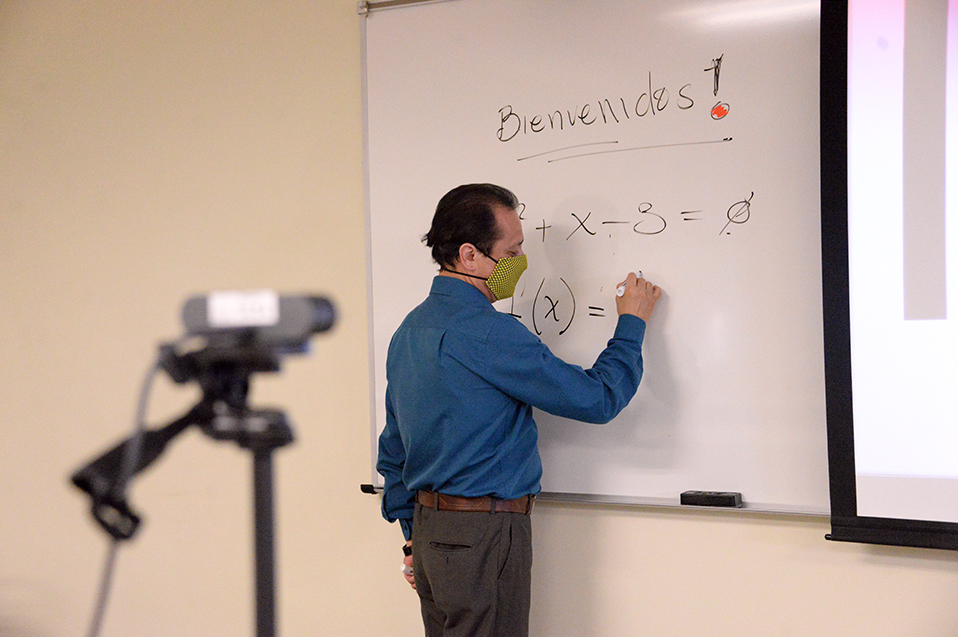 Bienvenidos!
² + x - 8 = 0
f'(x) =